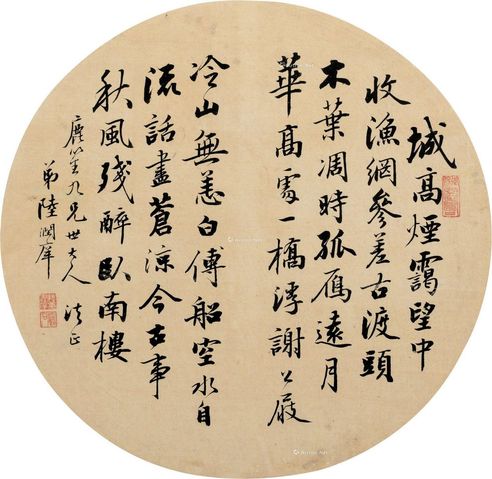 城高煙靄望中
收漁網參差古渡頭
木葉凋時孤鴈遠月
華高處一橋浮謝公屐
冷山無恙白傅船空水自
流話盡蒼涼今古事
秋風殘醉臥南樓
鹿笙九兄世大人法正
弟陸潤庠